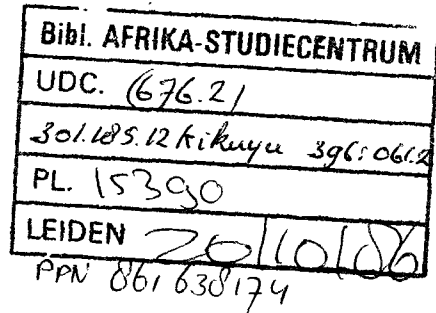 Bibl. AFRIKA-STUDIECENTRUM
UDC. (676.2)
301.185.12 Kikuyu 396:061.2
PL. 15390
LEIDEN 20/10/86
PPN 861 638174